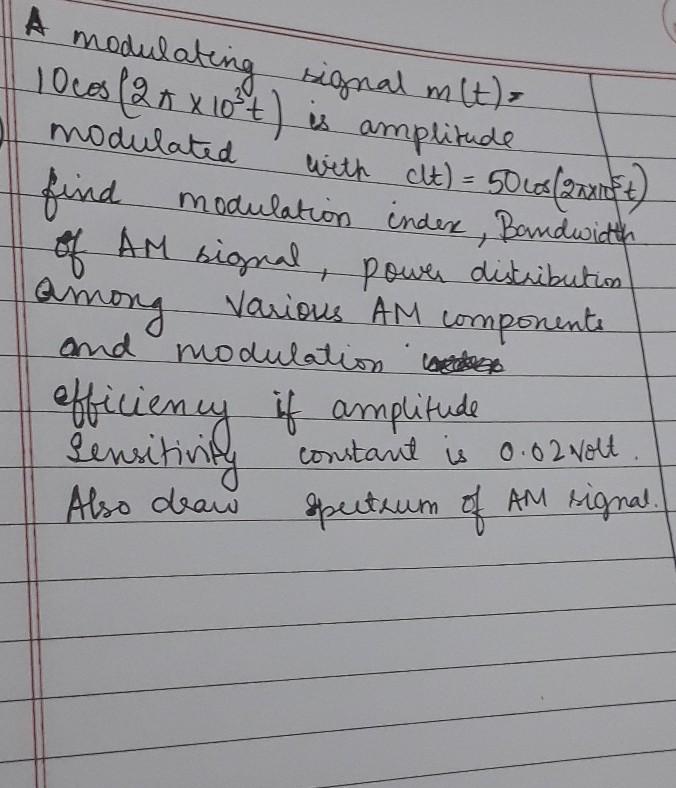 A modulating signal m(t)=
10cos(2π×10³t) is amplitude
modulated with c(t) = 50cos(2π×10⁵t)
find modulation index, Bandwidth
of AM signal, power distribution
among various AM components
and modulation
efficiency if amplitude
Sensitivity constant is 0.02 volt.
Also draw spectrum of AM signal.